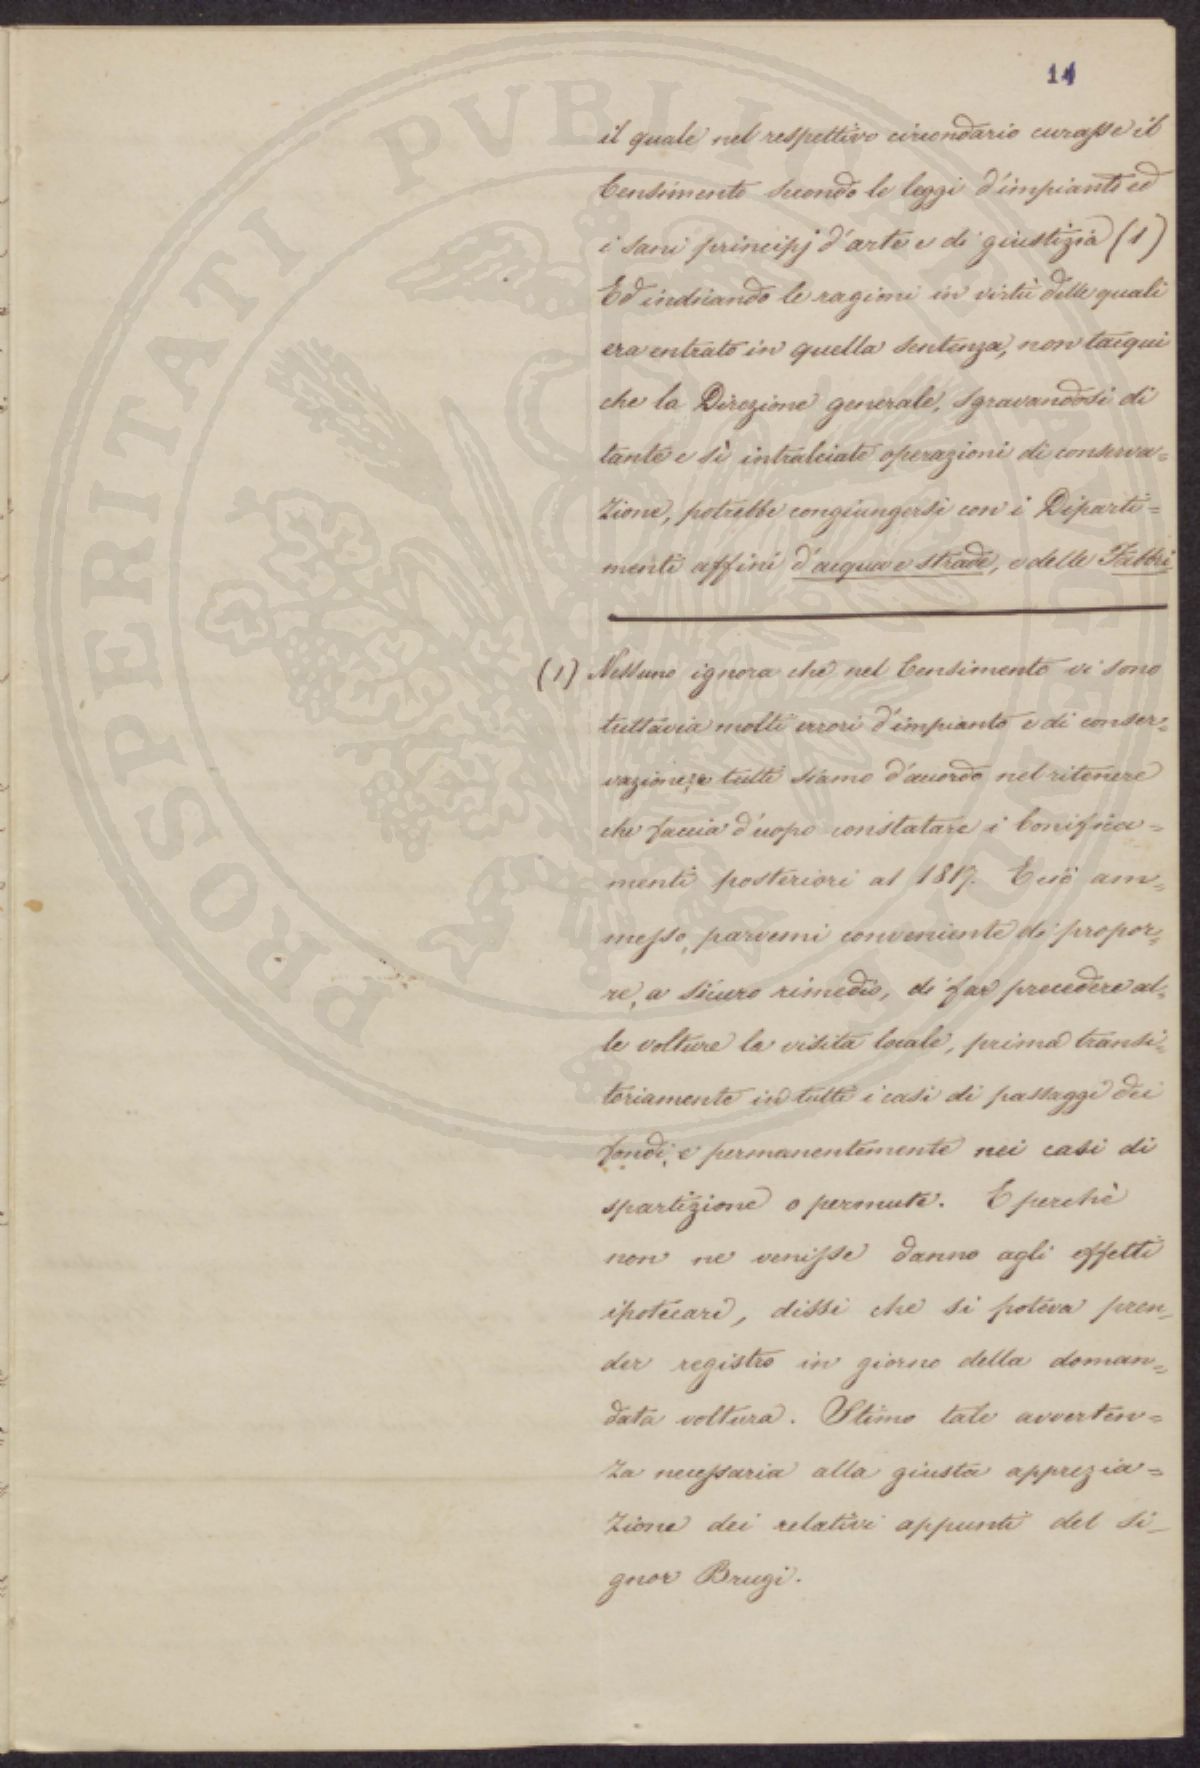 14
il quale nel respettivo circondario curasse il
Censimento secondo le leggi d'impianto ed
i sani principj d'arte e di giustizia (1)
Ed indicando le ragioni in virtù delle quali
era entrato in quella sentenza, non tacqui
che la Direzione generale, sgravandosi di
tante e sì intralciate operazioni di conserva=
zione, potrebbe congiungersi con i Diparti=
menti affini d'acqua e strade, e delle Fabbri
(1) Nessuno ignora che nel Censimento vi sono
tuttavia molti errori d'impianto e di conser=
vazione; e tutti siamo d'accordo nel ritenere
che faccia d'uopo constatare i bonifica=
menti posteriori al 1817. E ciò am=
messo, parvemi conveniente di propor=
re, a sicuro rimedio, di far precedere al=
le volture la visita locale, prima transi=
toriamente in tutti i casi di passaggi dei
fondi, e permanentemente nei casi di
spartizione o permute. E perchè
non ne venisse danno agli effetti
ipotecari, dissi che si poteva pren=
der registro in giorno della doman=
data voltura. Stimo tale avverten=
za necessaria alla giusta apprezia=
zione dei relativi appunti del Si=
gnor Brugi.
PROSPERITATI PVBLICAE